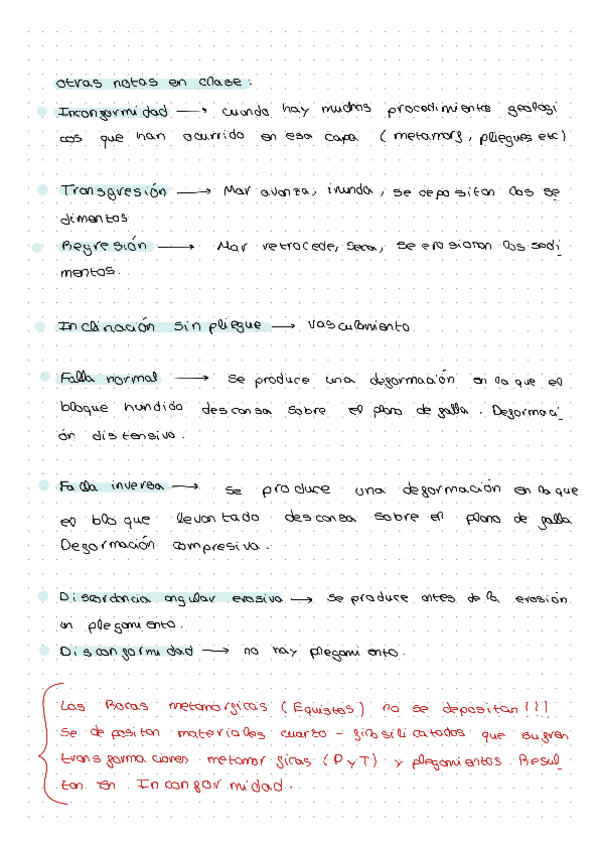 otras notas en clase:
Inconformidad → cuando hay muchos procedimientos geologi
cos que han ocurrido en esa capa (metamorf, pliegues etc)
Transgresión → Mar avanza, inunda, se depositan los se
dimentos
Regresión → Mar retrocede, seca, se erosionan los sedi
mentos.
Inclinación sin pliegue → vasculamiento
Falla normal → se produce una deformación en la que el
bloque hundido descansa sobre el plano de falla. Deformaci
ón distensiva.
Falla inversa → se produce una deformación en la que
el bloque levantado descansa sobre el plano de falla
Deformación compresiva.
Discordancia angular erosiva → se produce antes de la erosión
un plegamiento.
Disconformidad → no hay plegamiento.
Las Rocas metamorficas (Equistos) no se depositan!!!
Se depositan materiales cuarzo - finosilicatados que sufren
transformaciones metamorficas (P y T) y plegamientos Resul
tan en Inconformidad..